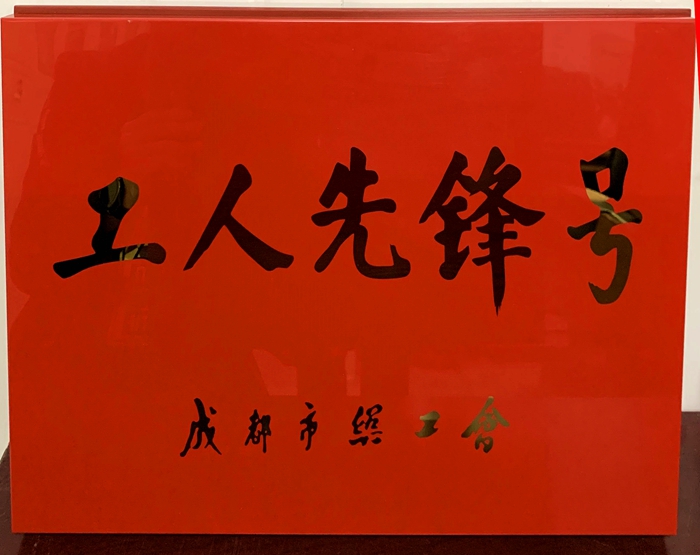 工人先锋号
成都市總工會